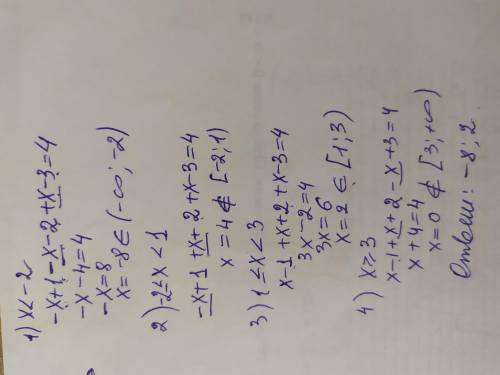 1) x<-2
-x+1-x-2+x-3=4
-x-4=4
-x=8
x=-8∈(-∞;-2)
2) -2≤x<1
-x+1+x+2+x-3=4
x=4∉[-2;1)
3) 1≤x<3
x-1+x+2+x-3=4
3x-2=4
3x=6
x=2∈[1;3)
4) x≥3
x-1+x+2-x+3=4
x+4=4
x=0∉[3;+∞)
Ответ: -8; 2